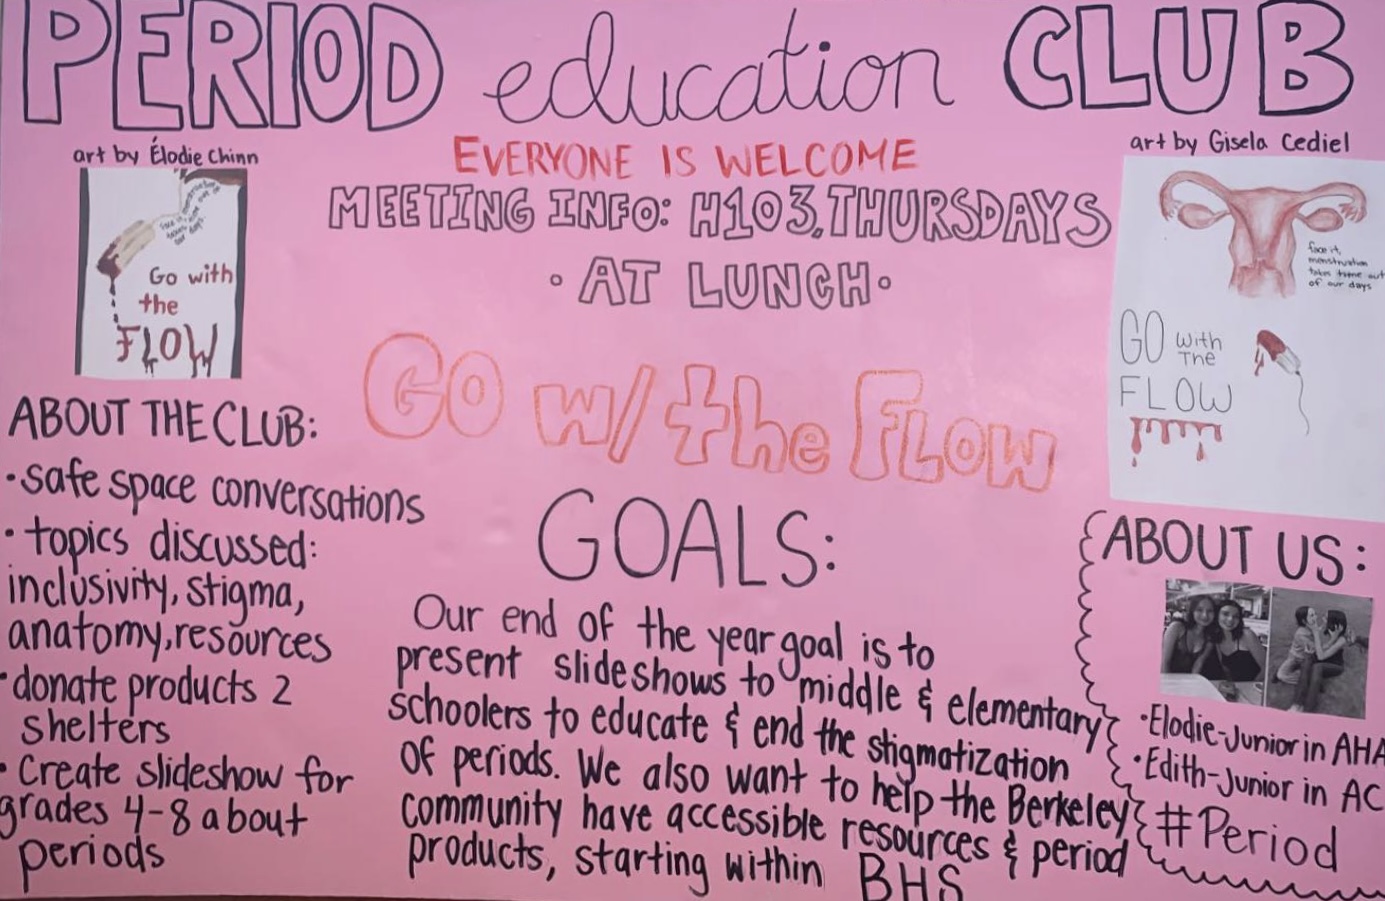 PERIOD education CLUB
art by Élodie Chinn
EVERYONE IS WELCOME
art by Gisela Cediel
MEETING INFO: H103, THURSDAYS
· AT LUNCH ·
Go with
the
FLOW
face it,
menstruation
takes time out
of our days
GO with
The
FLOW
GO w/ the FLOW
ABOUT THE CLUB:
·safe space conversations
·topics discussed:
inclusivity, stigma,
anatomy, resources
·donate products 2
shelters
·Create slideshow for
grades 4-8 about
periods
GOALS:
Our end of the year goal is to
present slideshows to middle & elementary
schoolers to educate & end the stigmatization
of periods. We also want to help the Berkeley
community have accessible resources & period
products, starting within BHS
ABOUT US:
·Elodie-Junior in AHA
·Edith-Junior in AC
#Period